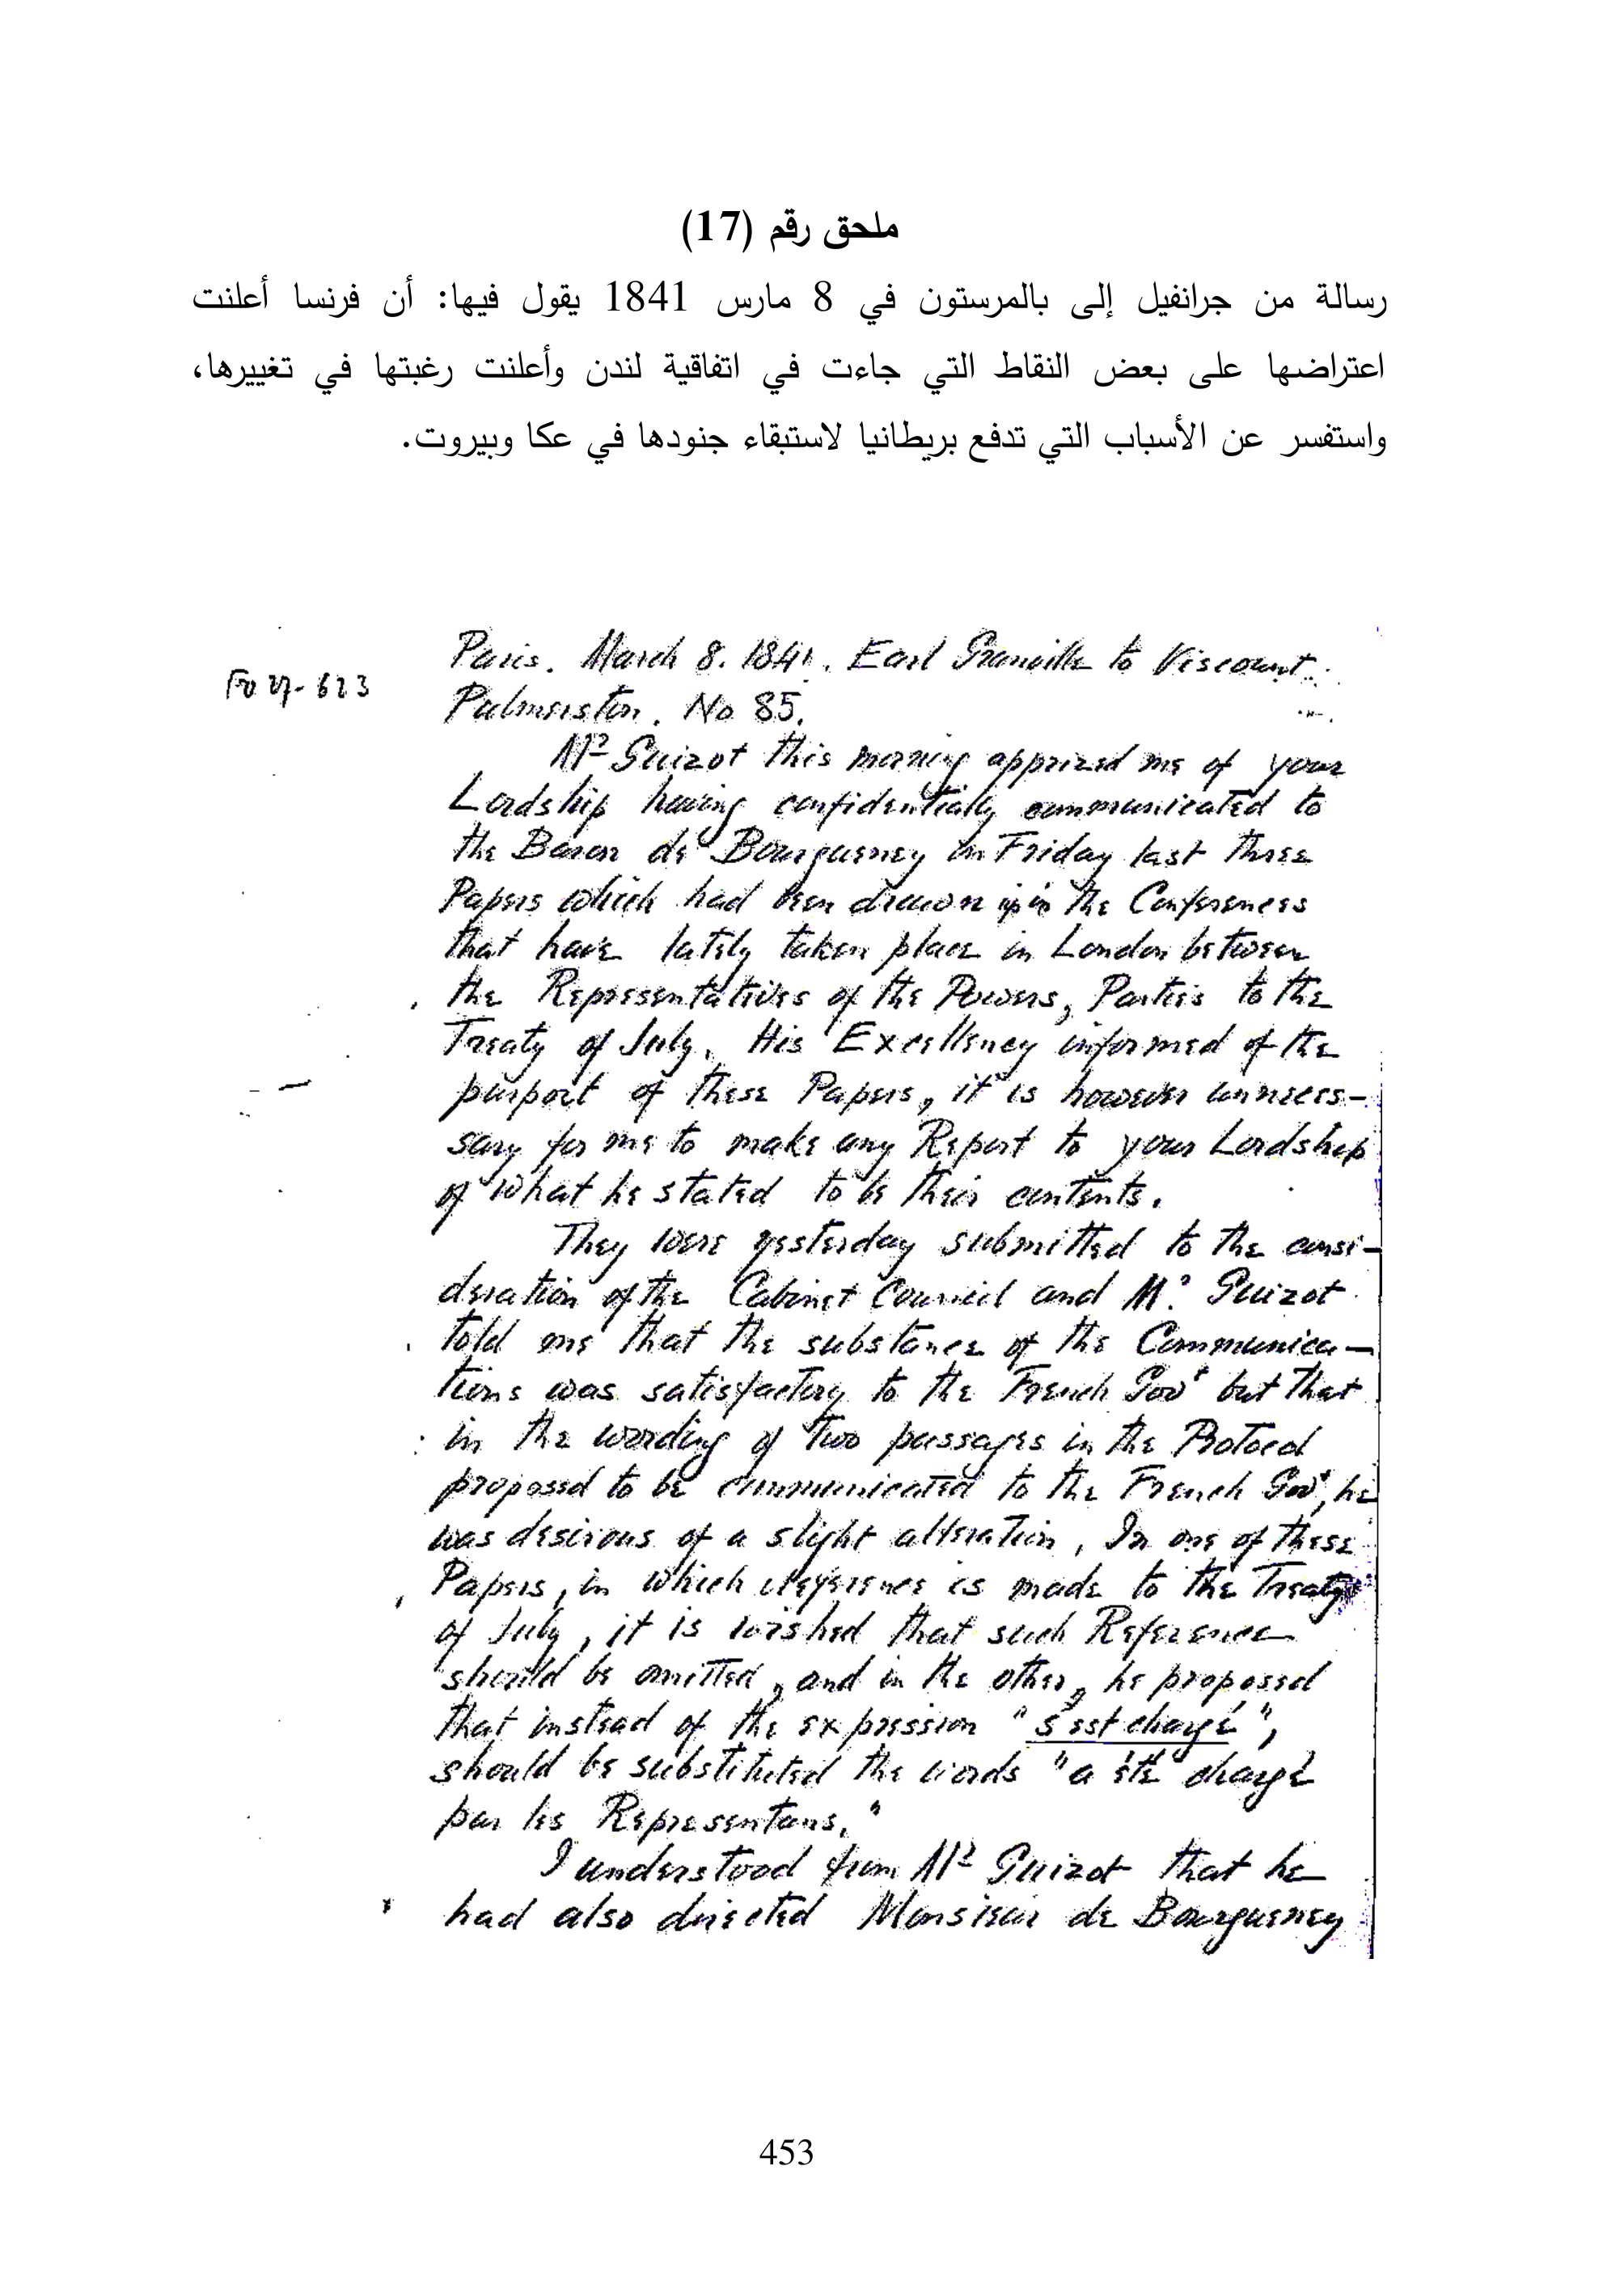 ملحق رقم (17)
رسالة من جرانفيل إلى بالمرستون في 8 مارس 1841 يقول فيها: أن فرنسا أعلنت
اعتراضها على بعض النقاط التي جاءت في اتفاقية لندن وأعلنت رغبتها في تغييرها،
واستفسر عن الأسباب التي تدفع بريطانيا لاستبقاء جنودها في عكا وبيروت.
Fo 27-623
Paris. March 8. 1841. Earl Granville to Viscount
Palmerston. No 85.
Mr Guizot this morning apprized me of your
Lordship having confidentially communicated to
the Baron de Bourqueney on Friday last three
Papers which had been drawn up in the Conferences
that have lately taken place in London between
the Representatives of the Powers, Parties to the
Treaty of July. His Excellency informed of the
purport of these Papers, it is however unneces-
sary for me to make any Report to your Lordship
of what he stated to be their contents.
They were yesterday submitted to the consi-
deration of the Cabinet Council and M. Guizot
told me that the substance of the Communica-
tions was satisfactory to the French Govt but that
in the wording of two passages in the Protocol
proposed to be communicated to the French Govt, he
was desirous of a slight alteration, In one of these
Papers, in which reference is made to the Treaty
of July, it is wished that such Reference
should be omitted, and in the other, he proposed
that instead of the expression "s'est chargé",
should be substituted the words "a été chargé
par les Representans."
I understood from Mr Guizot that he
had also directed Monsieur de Bourqueney
453